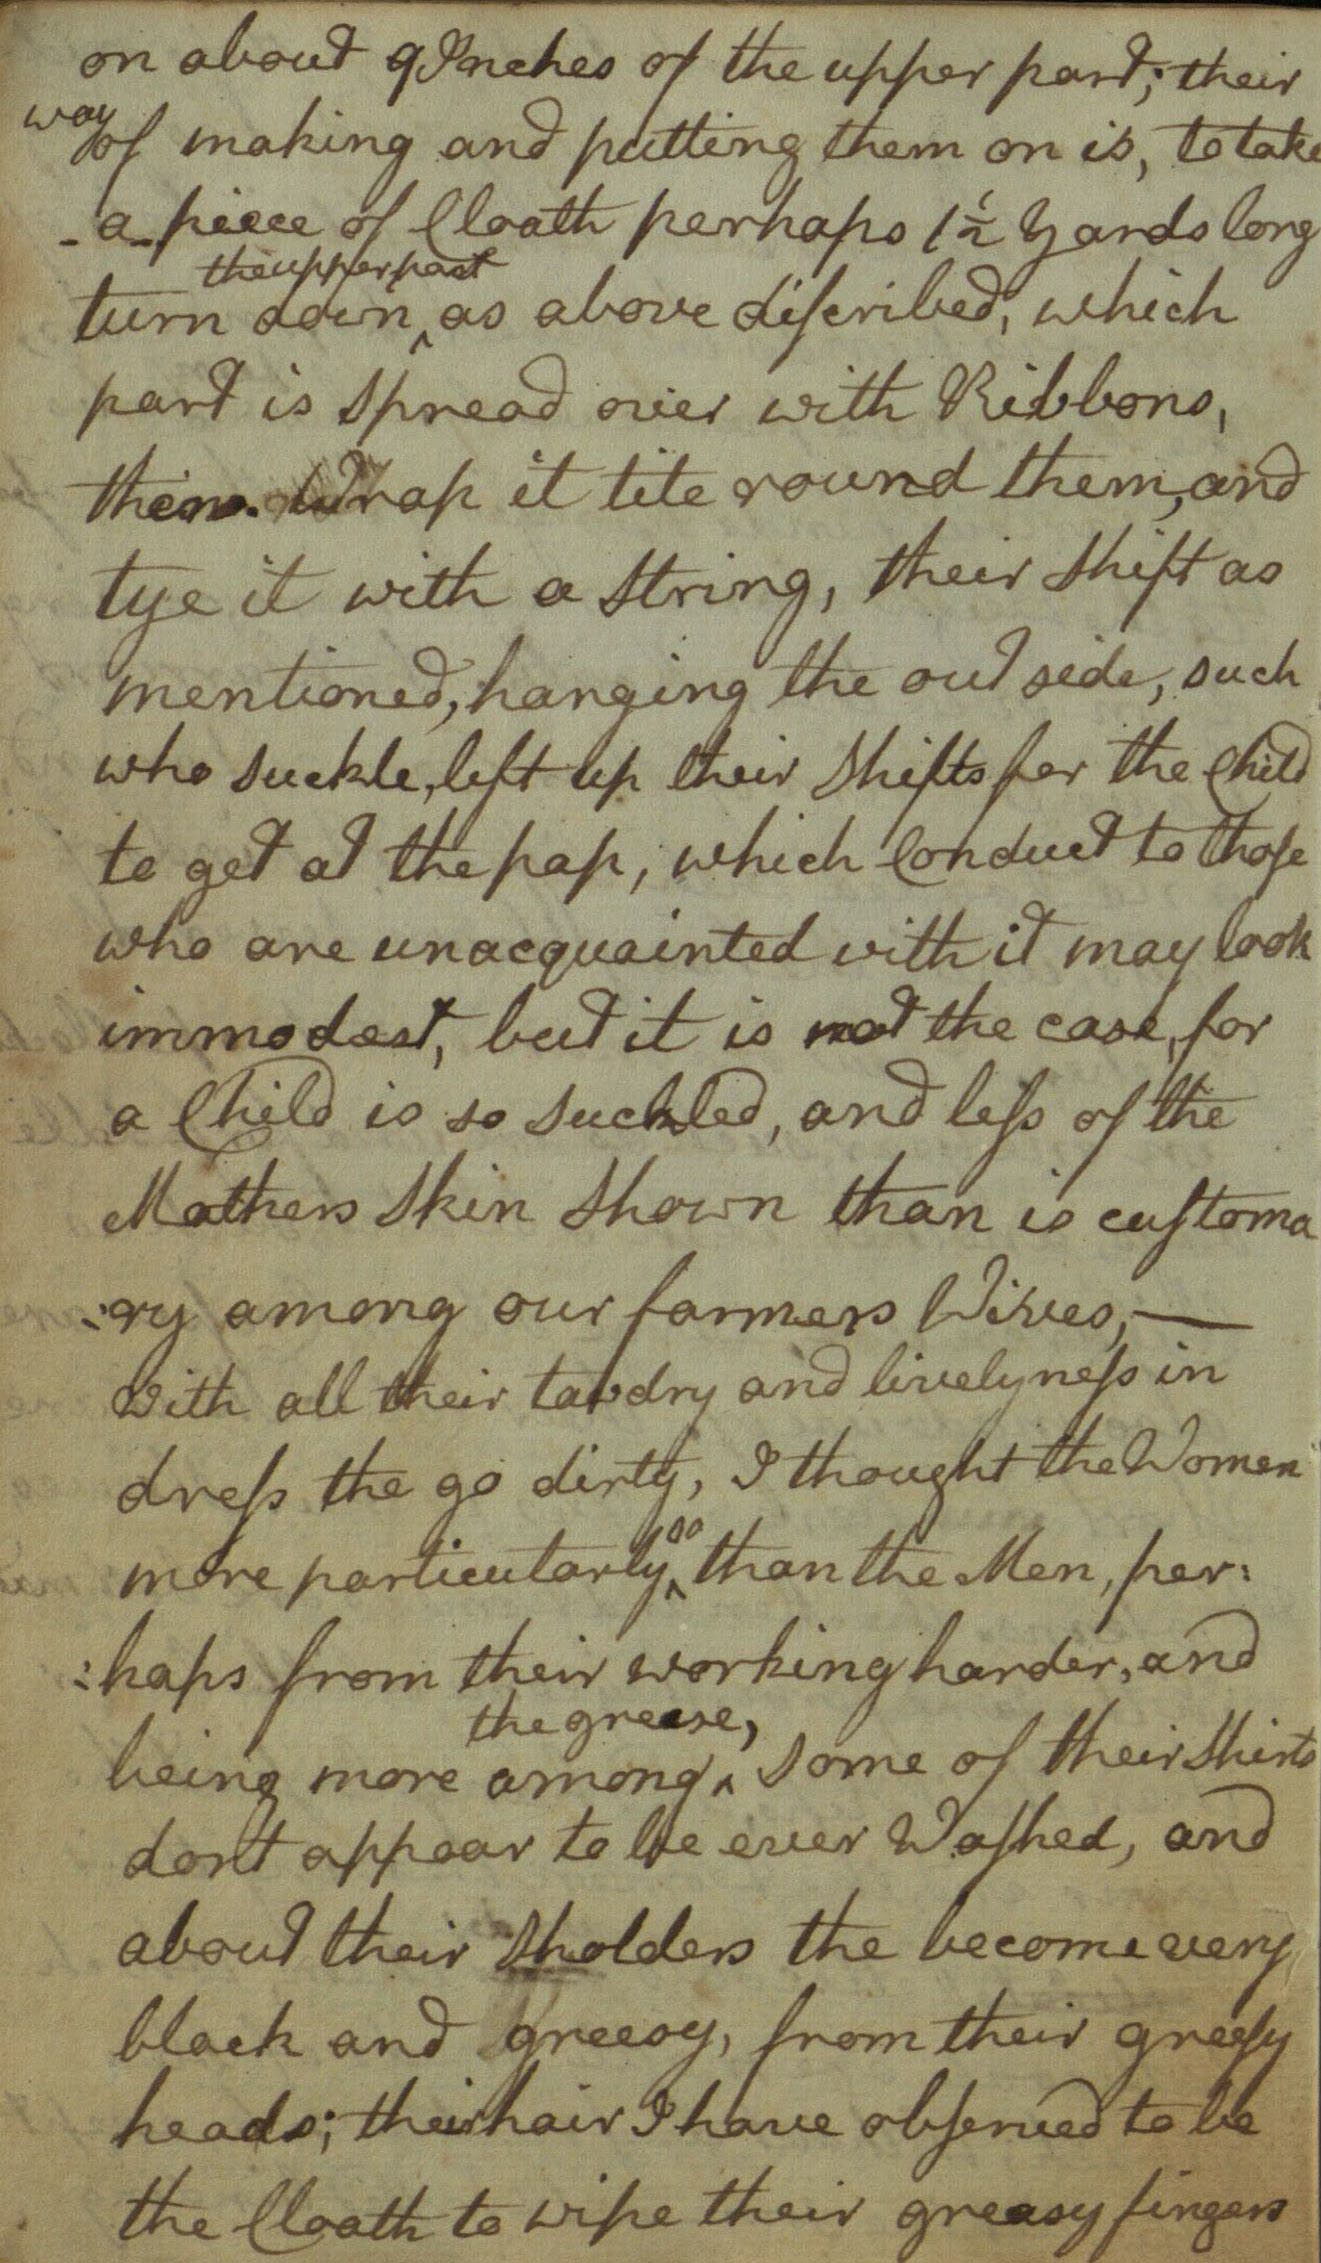 on about 9 Inches of the upper part; their
way of making and putting them on is, to take
- a - pieece of Cloath perhaps 1½ Yards long
the upper part
turn down ^ as above diſcribed, which
part is Spread over with Ribbons,
then Wrap it tite round them, and
tye it with a String, their Shift as
mentioned, hanging the out side, such
who suckle, left up their Shifts for the Child
to get at the pap, which Conduct to thoſe
who are unacquainted with it may look
immodest, but it is not the case, for
a Child is so suckled, and leſs of the
Mothers Skin Shown than is cuſtoma
:ry among our farmers Wives, —
With all their tawdry and livelyneſs in
dreſs the go dirty, I thought the Women
more particularly ^ so than the Men, per:
:haps from their working harder, and
the grease,
being more among ^ some of their Shirts
dont appear to be ever Waſhed, and
about their Sholders the become very
black and greesy, from their greeſy
heads; their hair I have obſerved to be
the Cloath to wipe their greasy fingers